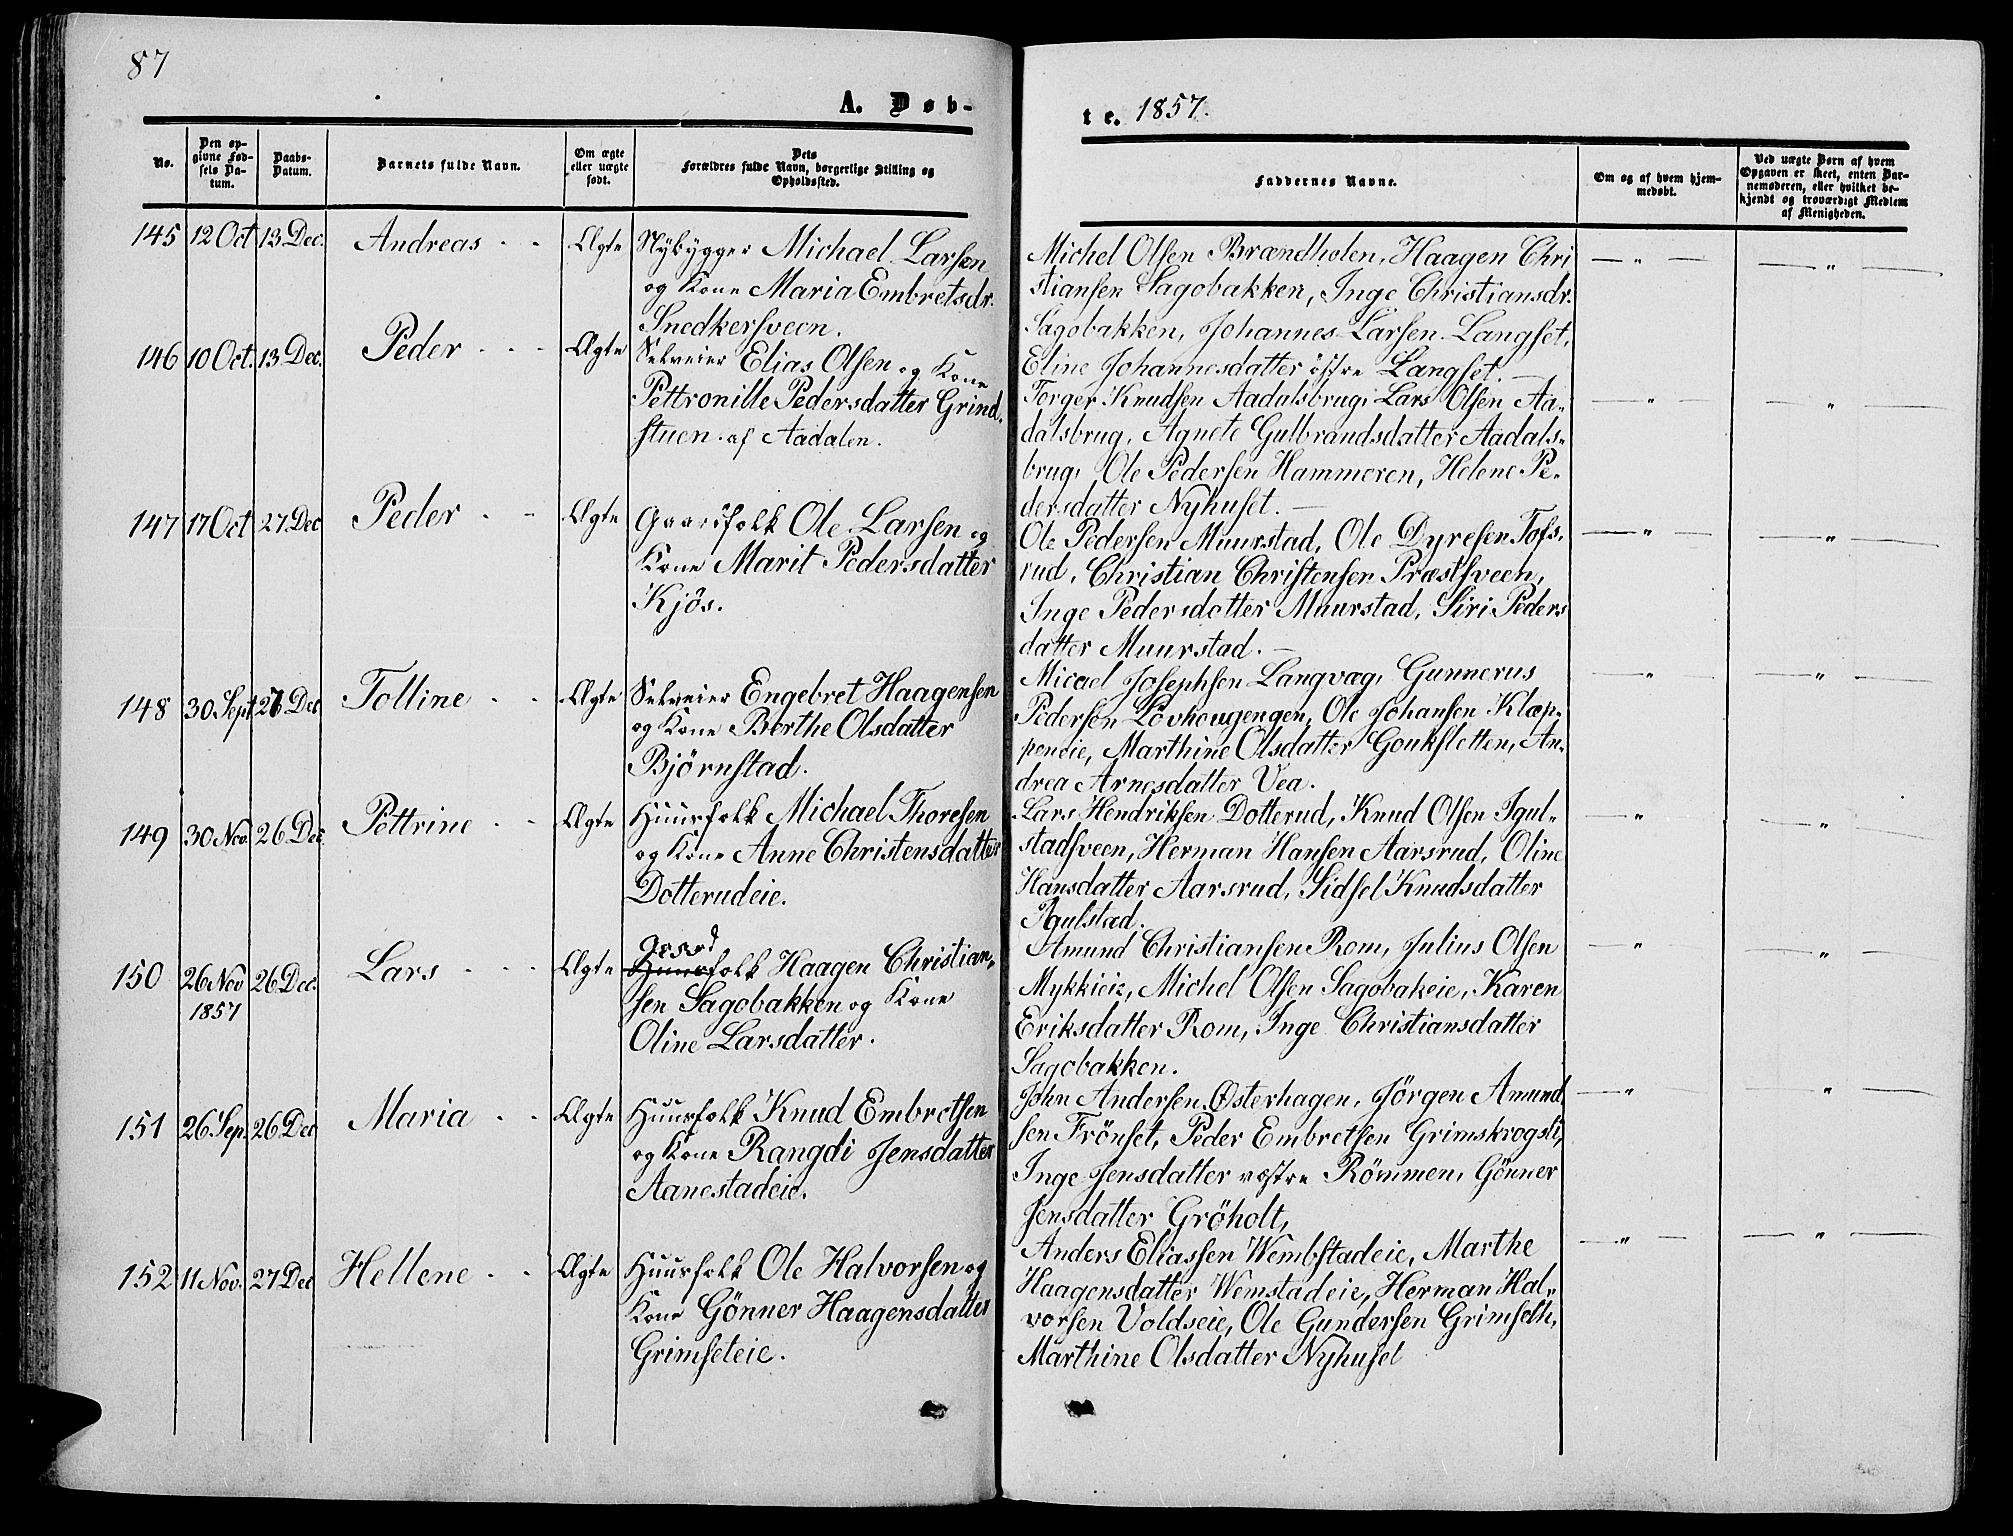 87
A. Døb-
No.
Den op-
givne Fød-
sels Da-
tum.
Daabs-
Datum.
Barnets fulde Navn.
Om ægte
eller uægte
født.
Dets
Forældres fulde Navn, borgerlige Stilling og
Opholdssted.
145 12 Oct 13 Dec. Andreas - - Ægte Nybygger Michael Larsen
og Kone Maria Embretsdr.
Snedkersveen.
146 10 Oct. 13 Dec. Peder - - - Ægte Selveier Elias Olsen og Kone
Pettronille Pedersdatter Grind-
stuen af Aadalen.
147 17 Oct 27. Dec Peder - - Ægte Gaardfolk Ole Larsen og
Kone Marit Pedersdatter
Kjös.
148 30 Sept 27 Dec Tolline - - Ægte Selveier Engebret Haagensen
og Kone Berthe Olsdatter
Bjørnstad.
149 30 Nov. 26 Dec. Pettrine - - Ægte Huusfolk Michael Thoresen
og Kone Anne Christensdatter
Dotterudeie.
Gaard
150 26 Nov 26 Dec. Lars - - - Ægte Huusfolk Haagen Christian-
1857 sen Sagobakken og Kone
Oline Larsdatter.
151 26. Sep. 26 Dec Maria - - Ægte Huusfolk Knud Embretsen
og Kone Rangdi Jensdatter
Aanestadeie.
152 11 Nov. 27 Dec Hellene - - Ægte Huusfolk Ole Halvorsen og
Kone Gönner Haagensdatter
Grimseteie.
te. 1857.
Faddernes Navne.
Om og af hvem hjem-
medøbt.
Ved uægte Børn af hvem
Opgaven er skeet, enten Bar-
nemoderen, eller hvilket be-
kjendt og troværdigt Medlem
af Menigheden.
Michel Olsen Brændholen, Haagen Chri — " — — " —
stiansen Sagobakken, Inge Christiansdr.
Sagobakken, Johannes Larsen Langset,
Eline Johannesdatter östre Langset. —
Torger Knudsen Aadalsbrug, Lars Olsen Aa- — " — — " —
dalsbrug, Agnete Gulbrandsdatter Aadals-
brug, Ole Pedersen Hammeren, Helene Pe-
dersdatter Nyhuset. —
Ole Pedersen Muurstad, Ole Dyresen Tofs- — " — — " —
rud, Christian Christensen Præstsveen,
Inge Pedersdatter Muurstad, Siri Peders
datter Muurstad. —
Micael Josephsen Langvag, Gunnerus — " — — " —
Pedersen Lövhougengen, Ole Johansen Klæp-
peneie, Marthine Olsdatter Goukstetten, An-
drea Arnesdatter Vea.
Lars Hendriksen Dotterud, Knud Olsen Igul- — " — — " —
stadsveen, Herman Hansen Aarsrud, Oline
Hansdatter Aarsrud, Sidsel Knudsdatter
Igulstad.
Amund Christiansen Rom, Julius Olsen — " — — " —
Mykkieie, Michel Olsen Sagobakeie, Karen
Eriksdatter Rom, Inge Christiansdatter
Sagobakken.
John Andersen Østerhagen, Jörgen Amund — " — — " —
sen Frönset, Peder Embretsen Grimskrogsti,
Inge Jensdatter vestre Römmen, Gönner
Jensdatter Gröholt,
Anders Eliassen Wembstadeie, Marthe — " — — " —
Haagensdatter Wemstadeie, Herman Hal-
vorsen Voldseie, Ole Gundersen Grimseth,
Marthine Olsdatter Nyhuset